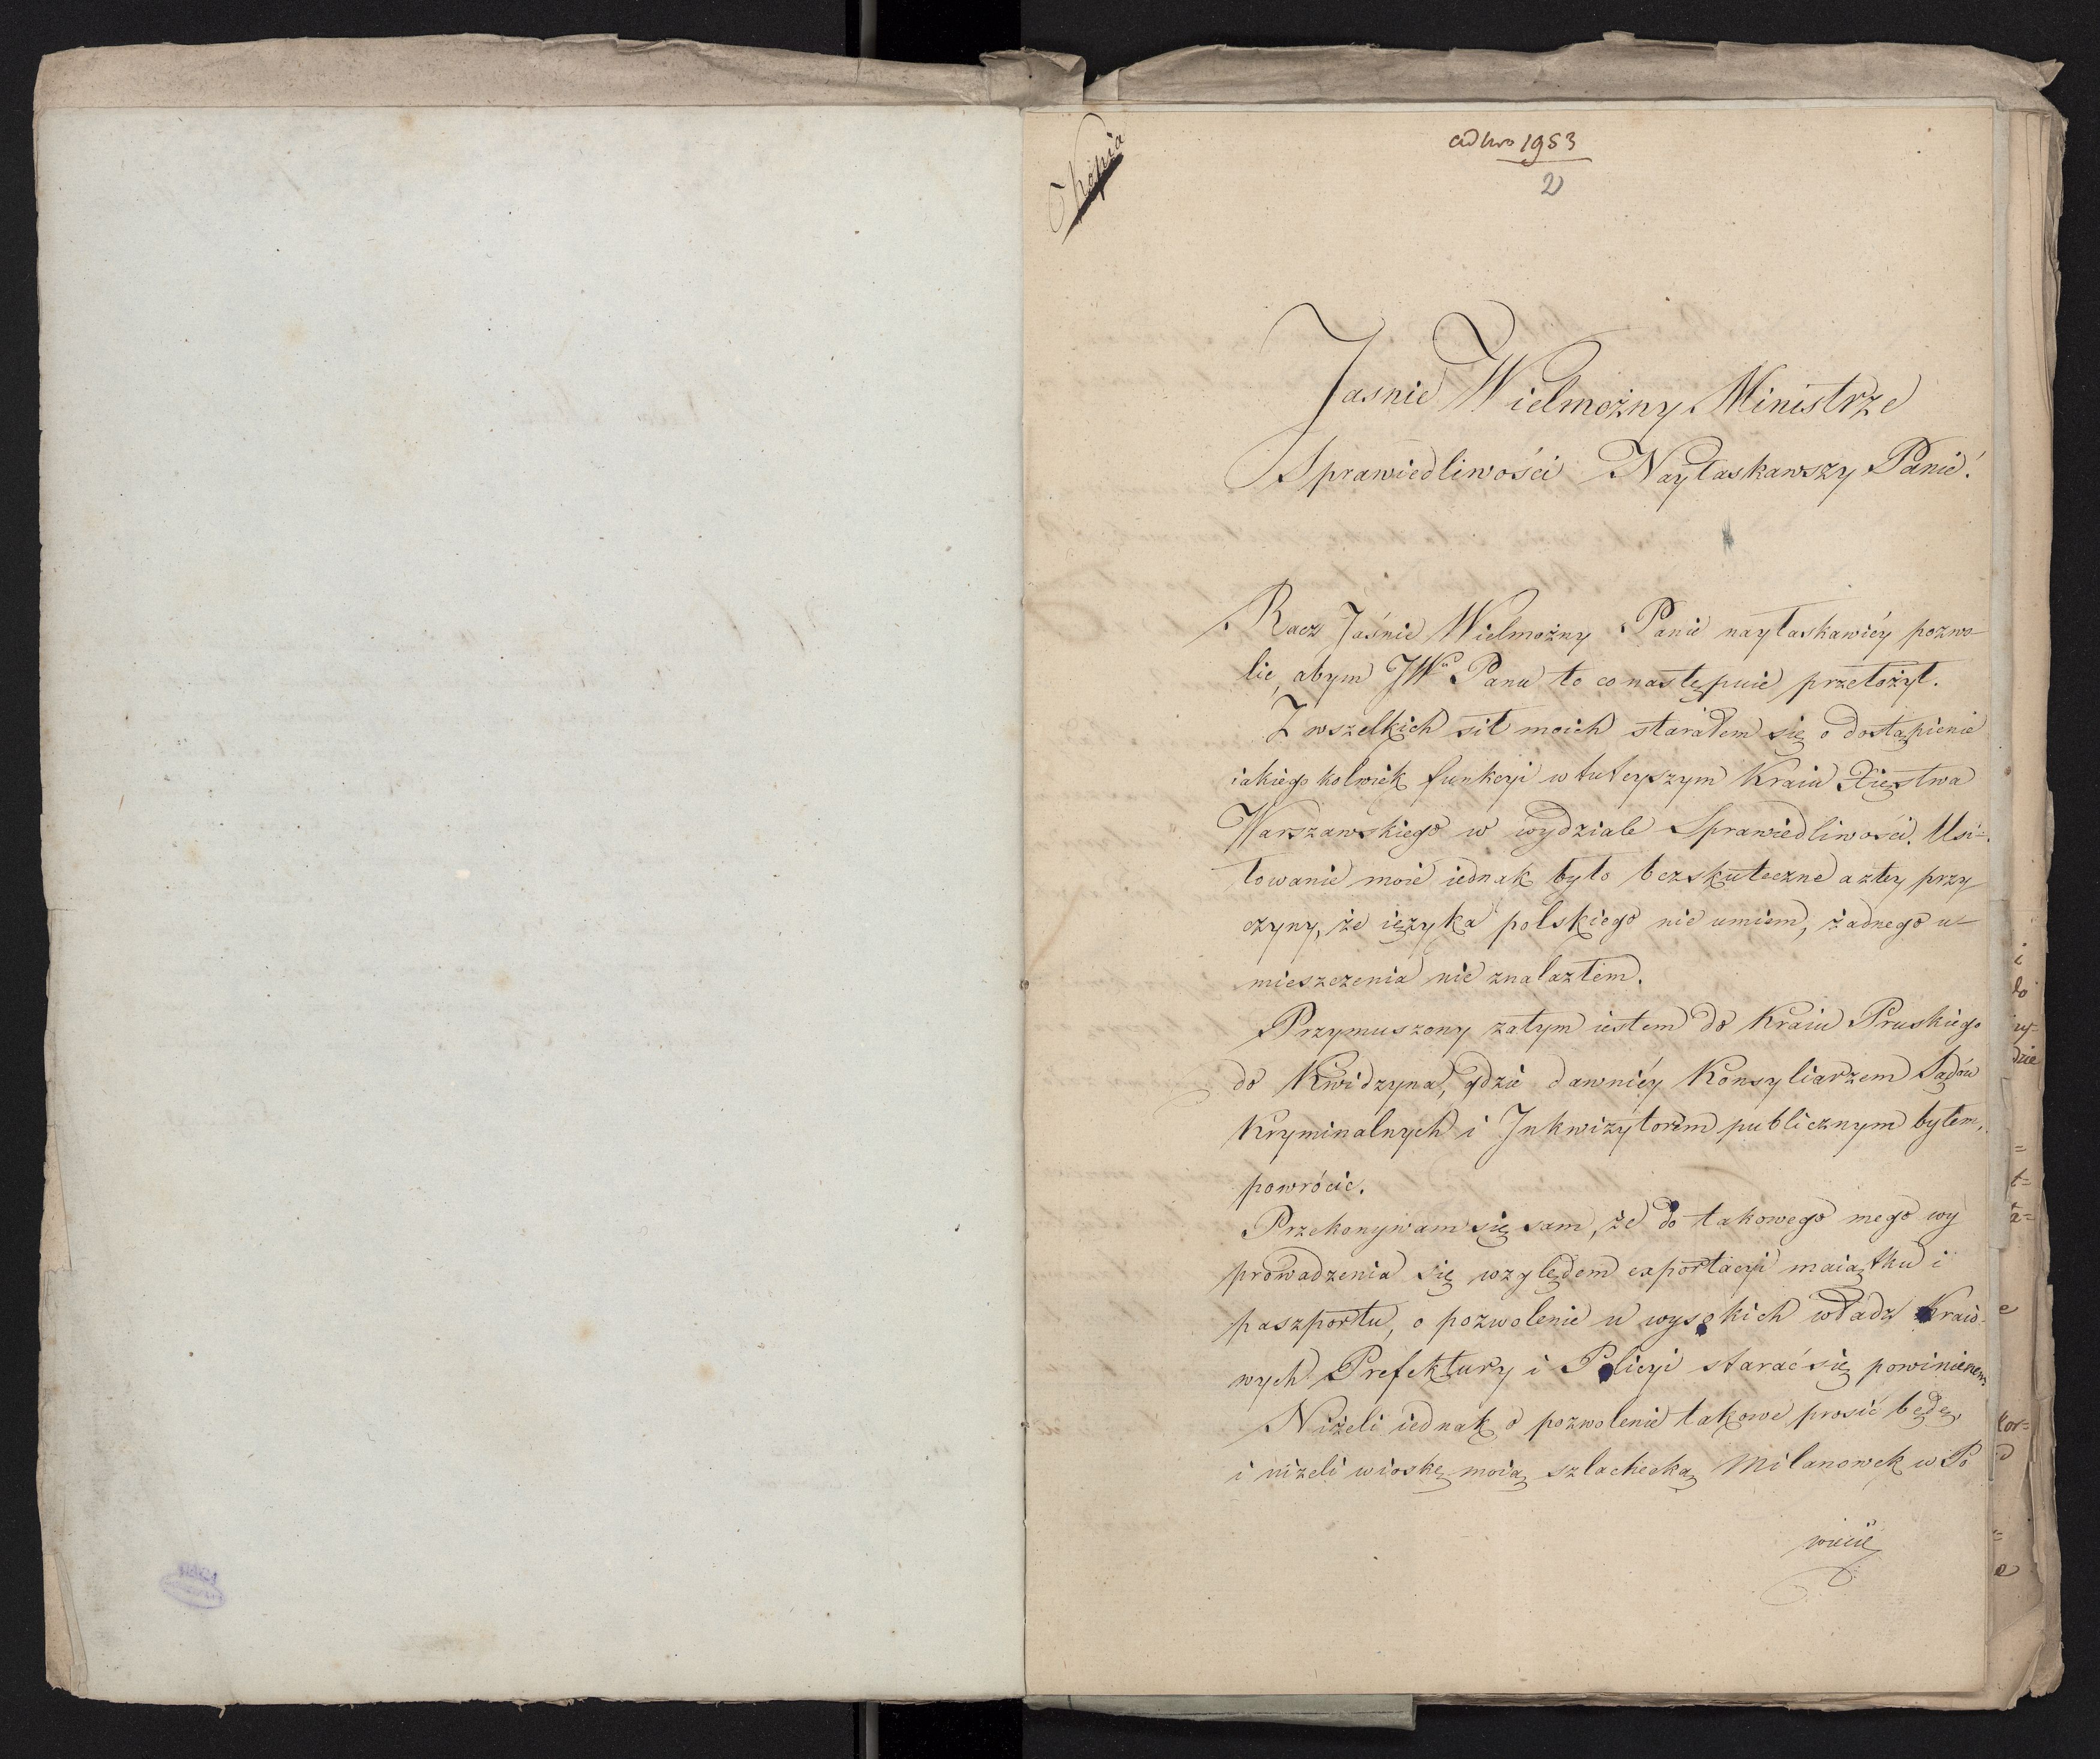 Kopia
ad Nro 1953
2
Jasnie Wielmożny Ministrze
Sprawiedliwości Nayłaskawszy Panie!
Racz Jaśnie Wielmożny Panie nayłaskawiéy pozwo-
lić, abym JWu Panu to co następuie przełożył.
Z wszelkich sił moich starałem się o dostąpienie
iakiego kolwiek funkcyi w tuteyszym Kraiu Xięstwa
Warszawskiego w wydziale Sprawiedliwości. Usi=
łowanie moie iednak było bezskuteczne a z tey przy
czyny, że ięzyka polskiego nie umiem, żadnego u-
mieszczenia nie znalazłem.
Przymuszony zatym iestem do Kraiu Pruskiego
do Kwidzyna, gdzie dawniéy Konsyliarzem Sądów
Kryminalnych i Inkwizytorem publicznym byłem,
powrócić.
Przekonywam się sam, że do takowego mego wy
prowadzenia się względem exportacyi maiątku i
paszportu, o pozwolenie u wysokich władz Kraio-
wych Prefektury i Policyi starać się powinienem
Niżeli iednak o pozwolenie takowe prosić będę,
i niżeli wioskę moią szlachecką Milanowek w Po
wiecie